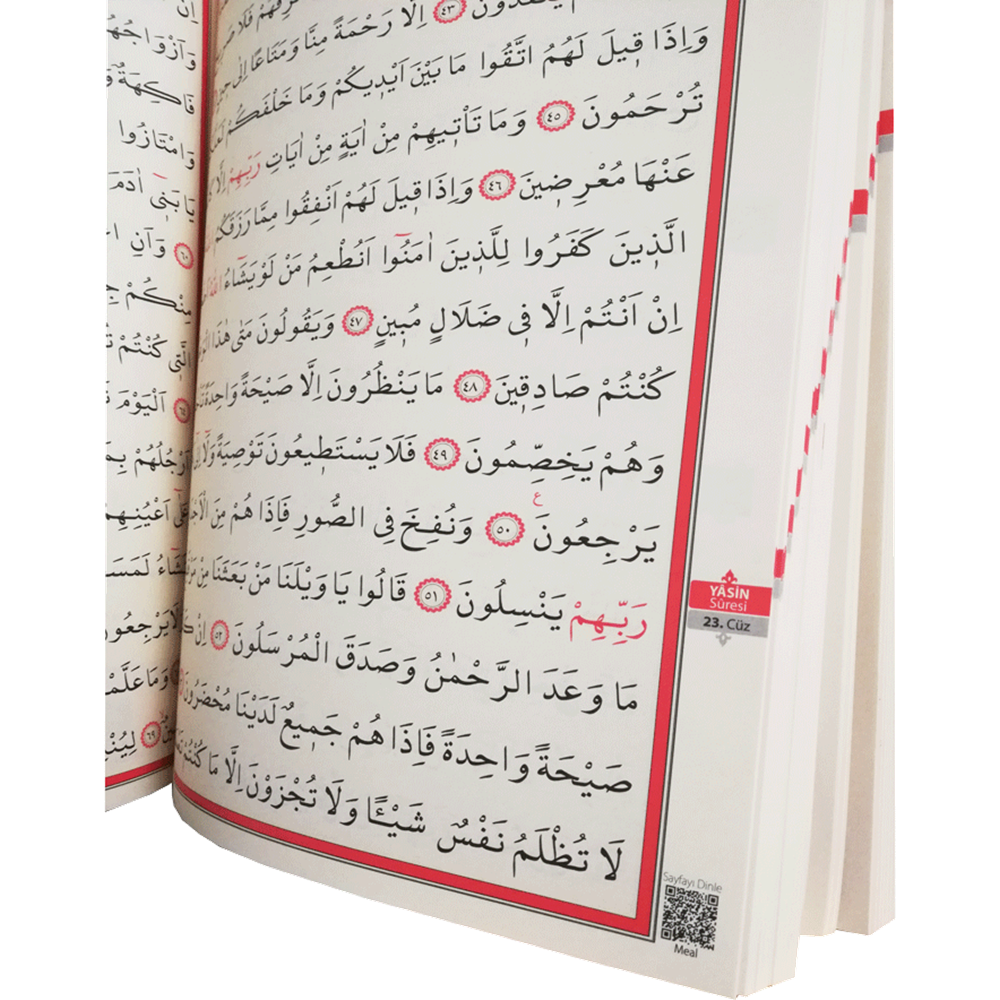 يُنْقَذُونَ ٤٣ اِلَّا رَحْمَةً مِنَّا وَمَتَاعًا اِلٰى
وَاِذَا قٖيلَ لَهُمُ اتَّقُوا مَا بَيْنَ اَيْدٖيكُمْ وَمَا خَلْفَكُمْ
تُرْحَمُونَ ٤٥ وَمَا تَأْتٖيهِمْ مِنْ اٰيَةٍ مِنْ اٰيَاتِ رَبِّهِمْ اِلَّا
عَنْهَا مُعْرِضٖينَ ٤٦ وَاِذَا قٖيلَ لَهُمْ اَنْفِقُوا مِمَّا رَزَقَكُمُ
الَّذٖينَ كَفَرُوا لِلَّذٖينَ اٰمَنُٓوا اَنُطْعِمُ مَنْ لَوْ يَشَٓاءُ اللّٰهُ
اِنْ اَنْتُمْ اِلَّا فٖي ضَلَالٍ مُبٖينٍ ٤٧ وَيَقُولُونَ مَتٰى هٰذَا
كُنْتُمْ صَادِقٖينَ ٤٨ مَا يَنْظُرُونَ اِلَّا صَيْحَةً وَاحِدَةً
وَهُمْ يَخِصِّمُونَ ٤٩ فَلَا يَسْتَطٖيعُونَ تَوْصِيَةً وَلَٓا
يَرْجِعُونَ ٥٠ ع وَنُفِخَ فِي الصُّورِ فَاِذَا هُمْ مِنَ
رَبِّهِمْ يَنْسِلُونَ ٥١ قَالُوا يَا وَيْلَنَا مَنْ بَعَثَنَا مِنْ
مَا وَعَدَ الرَّحْمٰنُ وَصَدَقَ الْمُرْسَلُونَ ٥٢ اِنْ
صَيْحَةً وَاحِدَةً فَاِذَا هُمْ جَمٖيعٌ لَدَيْنَا مُحْضَرُونَ
لَا تُظْلَمُ نَفْسٌ شَيْـًٔا وَلَا تُجْزَوْنَ اِلَّا مَا كُنْتُمْ
YÂSİN
Sûresi
23. Cüz
Sayfayı Dinle
Meal
اِنَّ
وَاَزْوَاجُهُمْ
فَاكِهَةٌ
وَامْتَازُوا
يَا بَنٖٓي اٰدَمَ
٦٠ وَاَنِ
مِنْكُمْ
الَّتٖي كُنْتُمْ
٦٤ اَلْيَوْمَ
اَرْجُلُهُمْ
عَلٰٓى اَعْيُنِهِمْ
لَمَسَ
يَرْجِعُونَ
وَمَا عَلَّمْ
٦٩ لِيُنْ